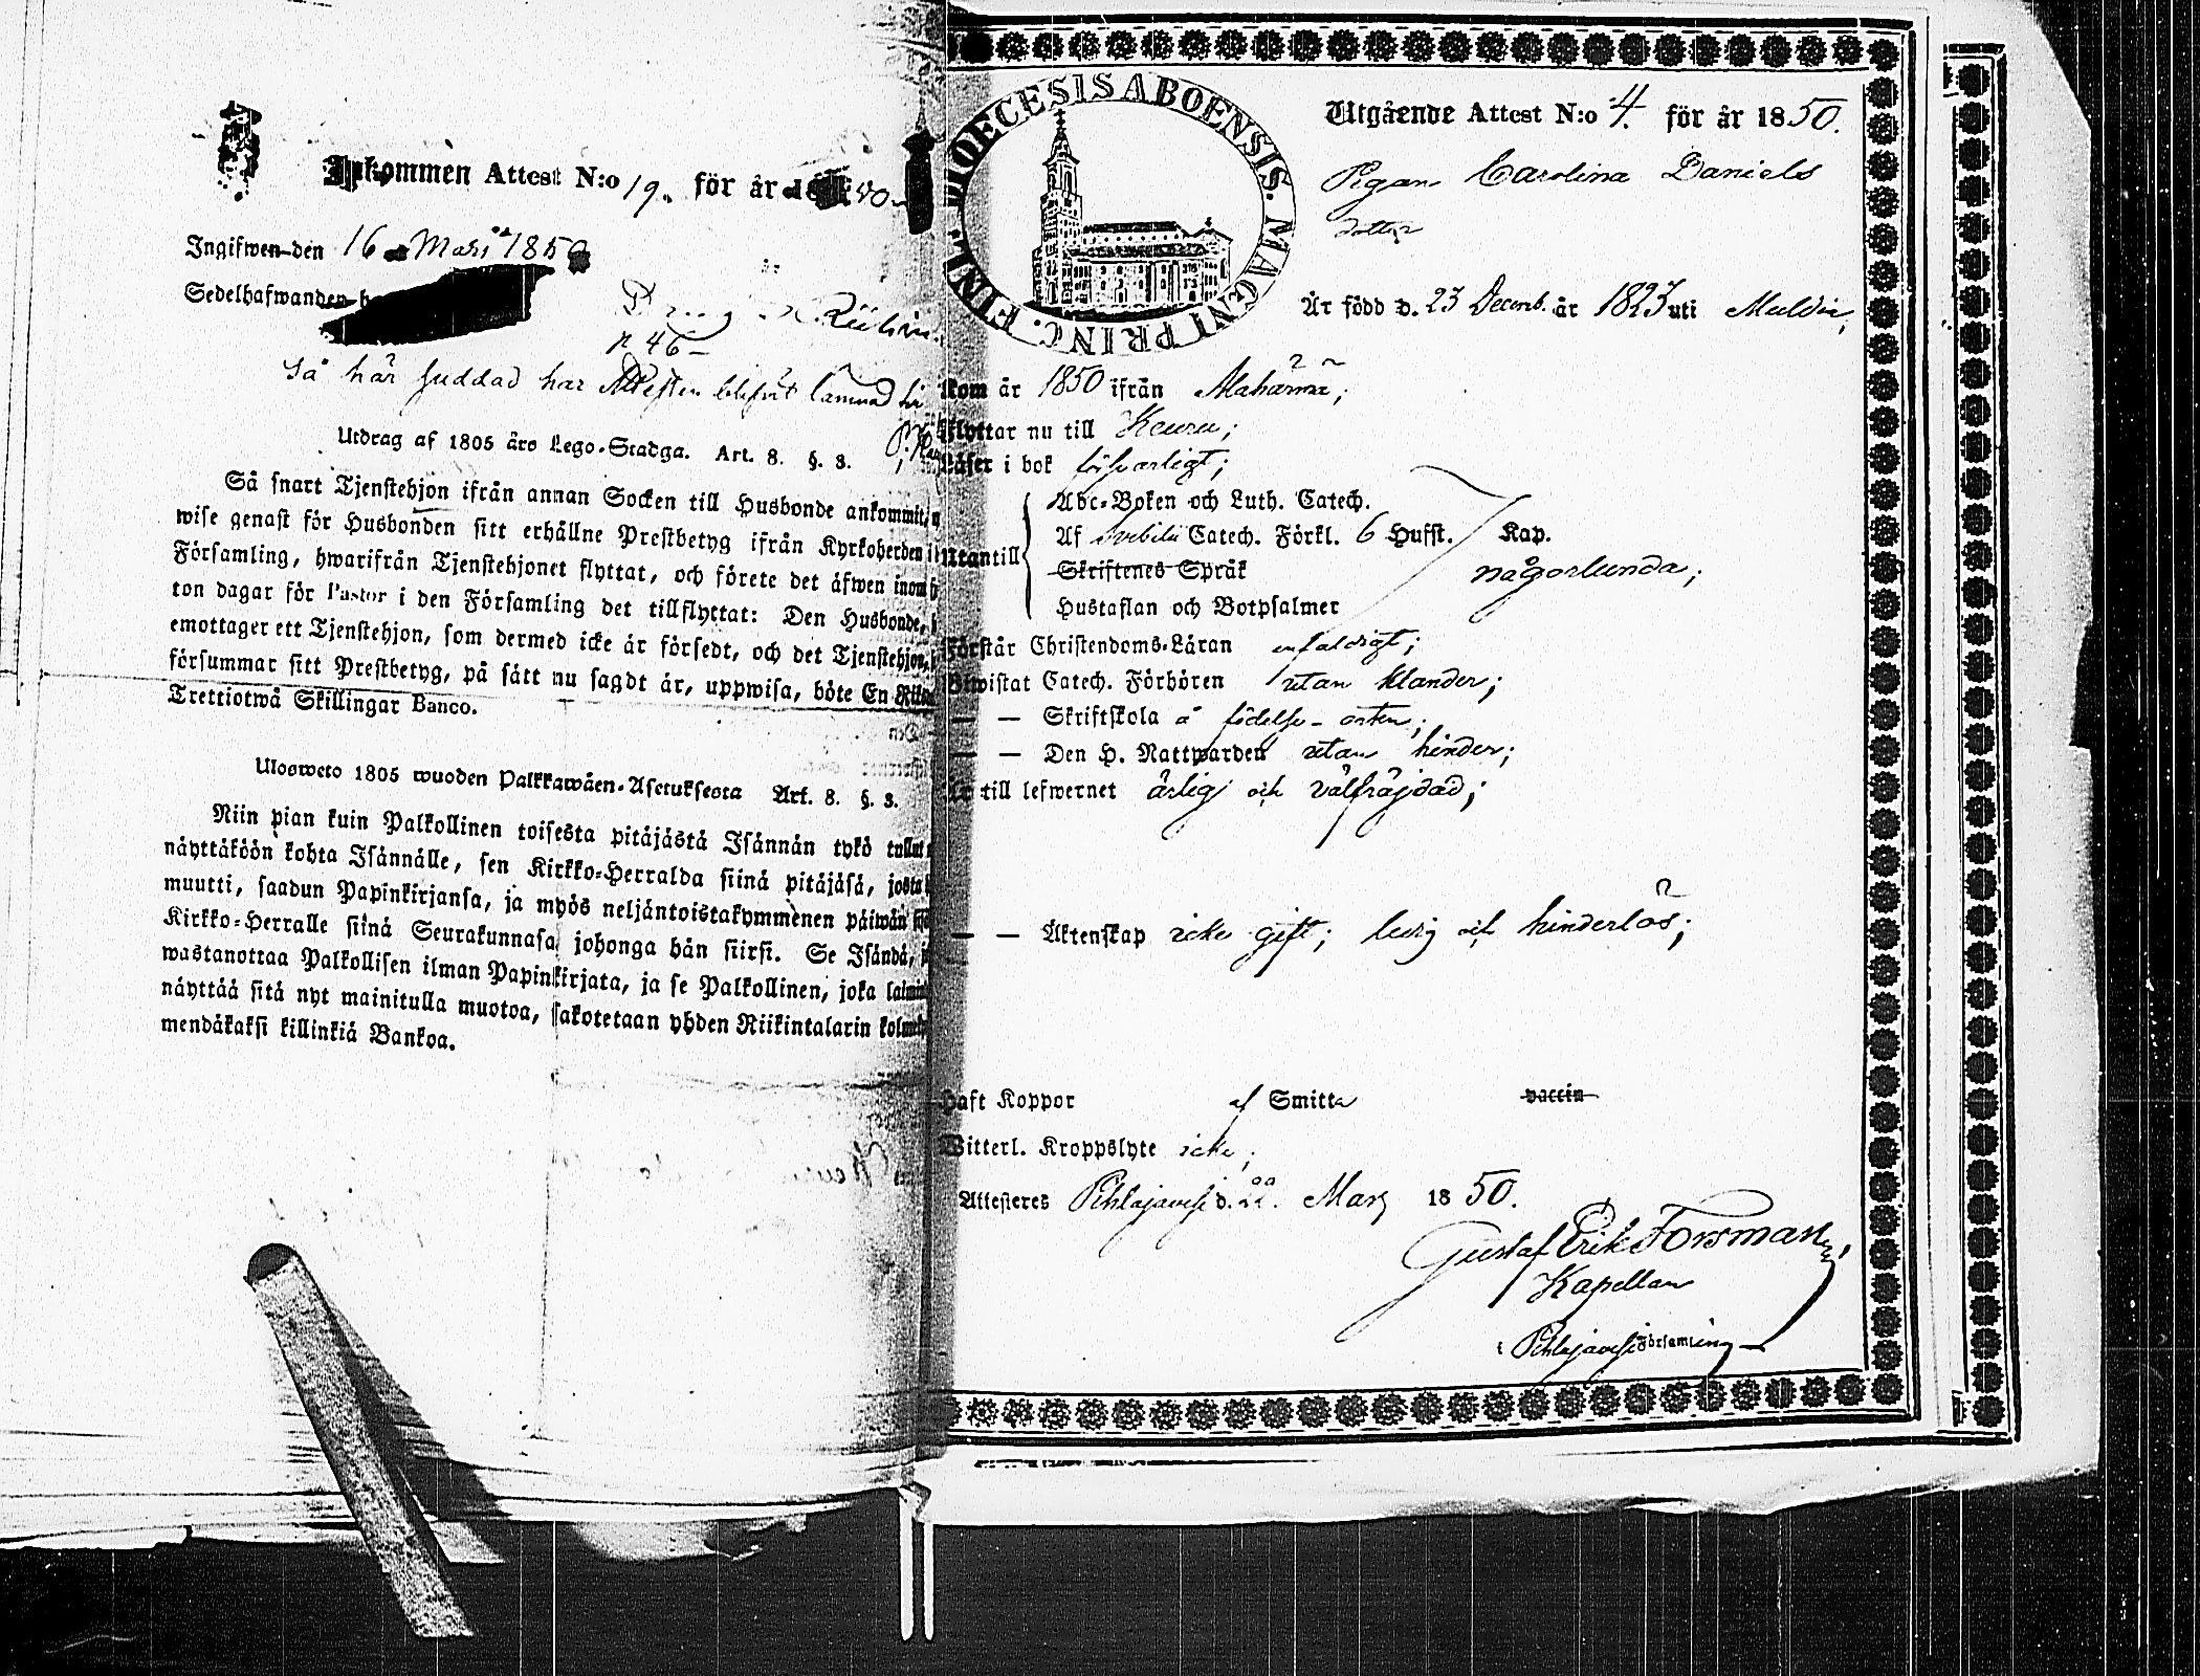 Inkommen Attest N:o 19. för år 1850
Ingifwen den 16 Mars 1850
Sedelhafwanden
N 46
Så här suddad har Attesten blifvit lämnad
Utdrag af 1805 års Lego-Stadga. Art. 8. §. 3.
Så snart Tjenstehjon ifrån annan Socken till Husbonde ankommit,
wise genast för Husbonden sitt erhållne Prestbetyg ifrån Kyrkoherden i
Församling, hwarifrån Tjenstehjonet flyttat, och förete det äfwen inom
ton dagar för Pastor i den Församling det tillflyttat: Den Husbonde,
emottager ett Tjenstehjon, som dermed icke är försedt, och det Tjenstehjon,
försummar sitt Prestbetyg, på sätt nu sagdt är, uppwisa, böte En
Trettiotwå Skillingar Banco.
Ulosweto 1805 wuoden Palkkawäen-Asetuksesta Art. 8. §. 3.
Niin pian kuin Palkollinen toisesta pitäjästä Isännän tykö tullut
näyttäköön kohta Isännälle, sen Kirkko-Herralda siinä pitäjäsä, josta
muutti, saadun Papinkirjansa, ja myös neljäntoistakymmenen päiwän
Kirkko-Herralle siinä Seurakunnasa johonga hän siirsi. Se Isändä,
wastanottaa Palkollisen ilman Papinkirjata, ja se Palkollinen, joka
näyttää sitä nyt mainitulla muotoa, sakotetaan yhden Riikintalarin
mendäkaksi killinkiä Bankoa.
DIOECESIS ABOENSIS. MAGNI PRINC. FINL.
Utgående Attest N:o 4. för år 1850.
Pigan Carolina Daniels
dotter
Är född d. 23 Decemb. år 1823 uti Muldia;
kom år 1850 ifrån Alahärmä;
flyttar nu till Keuru;
Läser i bok försvarligt;
Utantill
Abc-Boken och Luth. Catech.
Af Svebilii Catech. Förkl. 6 Hufst. Kap.
Skriftenes Språk någorlunda;
Hustaflan och Botpsalmer
Förstår Christendoms-Läran enfaldigt;
Biwistat Catech. Förhören utan klander;
— — Skriftskola å födelse-orten;
— — Den H. Nattwarden utan hinder;
Är till lefwernet ärlig och välfräjdad;
— — Äktenskap icke gift; ledig och hinderlös;
Haft Koppor af Smitta vaccin
Witterl. Kroppslyte icke;
Attesteras Pihlajavesi d. 22. Mars 1850.
Gustaf Erik Forsman,
Kapellan
i Pihlajavesi Församling